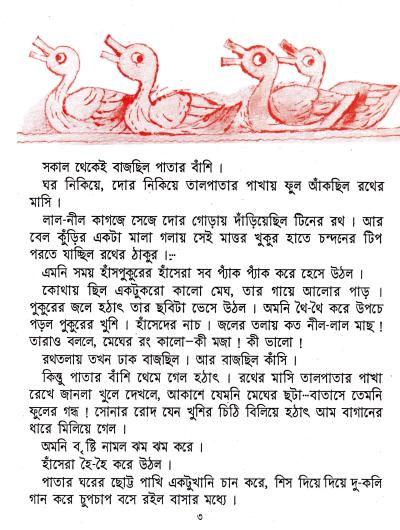 সকাল থেকেই বাজছিল পাতার বাঁশি ।
ঘর নিকিয়ে, দোর নিকিয়ে তালপাতার পাখায় ফুল আঁকছিল রথের
মাসি ।
লাল-নীল কাগজে সেজে দোর গোড়ায় দাঁড়িয়েছিল টিনের রথ । আর
বেল কুঁড়ির একটা মালা গলায় সেই মাত্তর খুকুর হাতে চন্দনের টিপ
পরতে যাচ্ছিল রথের ঠাকুর ।...
এমনি সময় হাঁসপুকুরের হাঁসেরা সব প্যাঁক প্যাঁক করে হেসে উঠল ।
কোথায় ছিল একটুকরো কালো মেঘ, তার গায়ে আলোর পাড় ।
পুকুরের জলে হঠাৎ তার ছবিটা ভেসে উঠল । অমনি থৈ-থৈ করে উপচে
পড়ল পুকুরের খুশি । হাঁসেদের নাচ । জলের তলায় কত নীল-লাল মাছ !
তারাও বললে, মেঘের রং কালো—কী মজা ! কী ভালো !
রথতলায় তখন ঢাক বাজছিল । আর বাজছিল কাঁসি ।
কিন্তু পাতার বাঁশি থেমে গেল হঠাৎ । রথের মাসি তালপাতার পাখা
রেখে জানলা খুলে দেখলে, আকাশে যেমনি মেঘের ছটা—বাতাসে তেমনি
ফুলের গন্ধ ! সোনার রোদ যেন খুশির চিঠি বিলিয়ে হঠাৎ আম বাগানের
ধারে মিলিয়ে গেল ।
অমনি বৃষ্টি নামল ঝম ঝম করে ।
হাঁসেরা হৈ-হৈ করে উঠল ।
পাতার ঘরের ছোট্ট পাখি একটুখানি চান করে, শিস দিয়ে দিয়ে দু-কলি
গান করে চুপচাপ বসে রইল বাসার মধ্যে ।
৩